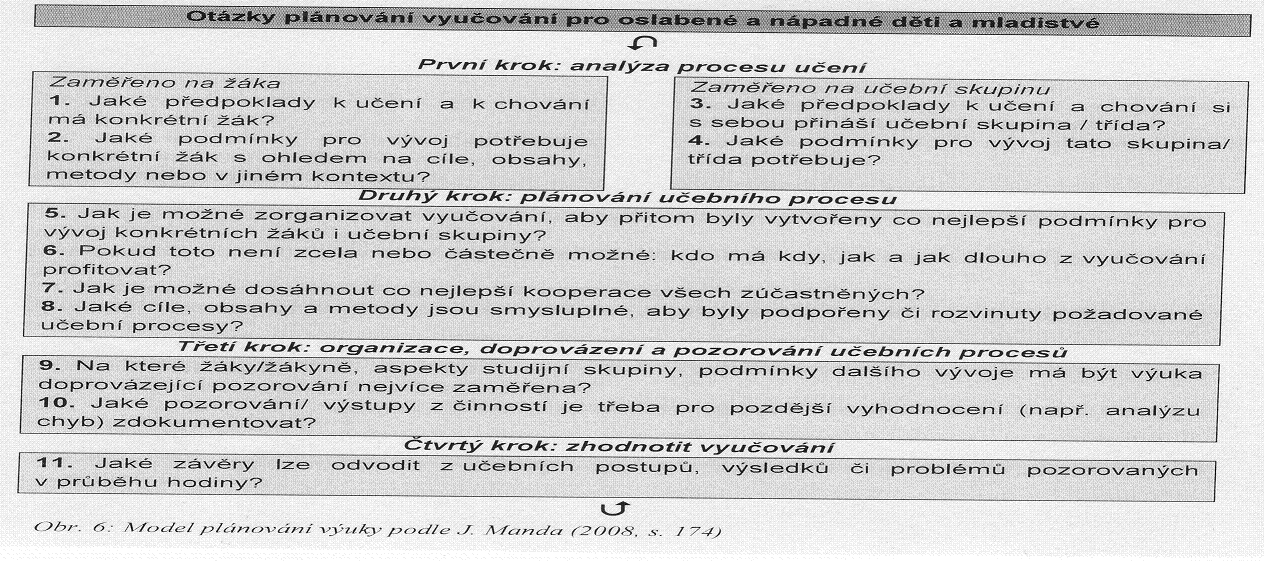 Otázky plánování vyučování pro oslabené a nápadné děti a mladistvé
První krok: analýza procesu učení
Zaměřeno na žáka
1. Jaké předpoklady k učení a k chování
má konkrétní žák?
2. Jaké podmínky pro vývoj potřebuje
konkrétní žák s ohledem na cíle, obsahy,
metody nebo v jiném kontextu?
Zaměřeno na učební skupinu
3. Jaké předpoklady k učení a chování si
s sebou přináší učební skupina / třída?
4. Jaké podmínky pro vývoj tato skupina/
třída potřebuje?
Druhý krok: plánování učebního procesu
5. Jak je možné zorganizovat vyučování, aby přitom byly vytvořeny co nejlepší podmínky pro
vývoj konkrétních žáků i učební skupiny?
6. Pokud toto není zcela nebo částečně možné: kdo má kdy, jak a jak dlouho z vyučování
profitovat?
7. Jak je možné dosáhnout co nejlepší kooperace všech zúčastněných?
8. Jaké cíle, obsahy a metody jsou smysluplné, aby byly podpořeny či rozvinuty požadované
učební procesy?
Třetí krok: organizace, doprovázení a pozorování učebních procesů
9. Na které žáky/žákyně, aspekty studijní skupiny, podmínky dalšího vývoje má být výuka
doprovázející pozorování nejvíce zaměřena?
10. Jaké pozorování/ výstupy z činností je třeba pro pozdější vyhodnocení (např. analýzu
chyb) zdokumentovat?
Čtvrtý krok: zhodnotit vyučování
11. Jaké závěry lze odvodit z učebních postupů, výsledků či problémů pozorovaných
v průběhu hodiny?
Obr. 6: Model plánování výuky podle J. Manda (2008, s. 174)